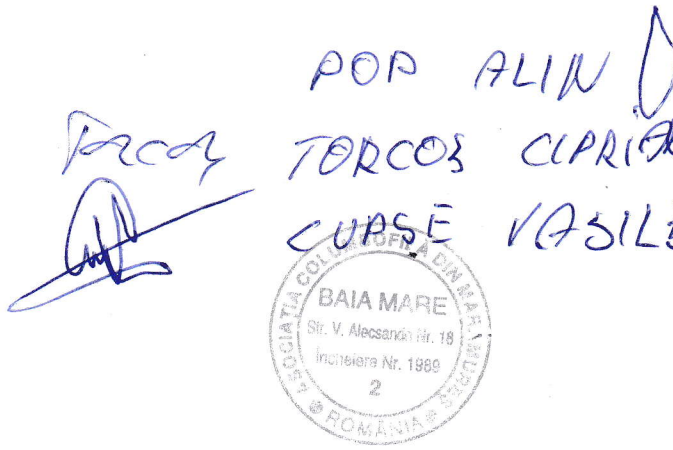 POP ALIN
Torcoș TORCOȘ CIPRIAN
CUPȘE VASILE
ASOCIAȚIA COLUMBOFILĂ DIN MARAMUREȘ
BAIA MARE
Str. V. Alecsandri Nr. 18
Incheiere Nr. 1989
2
ROMÂNIA